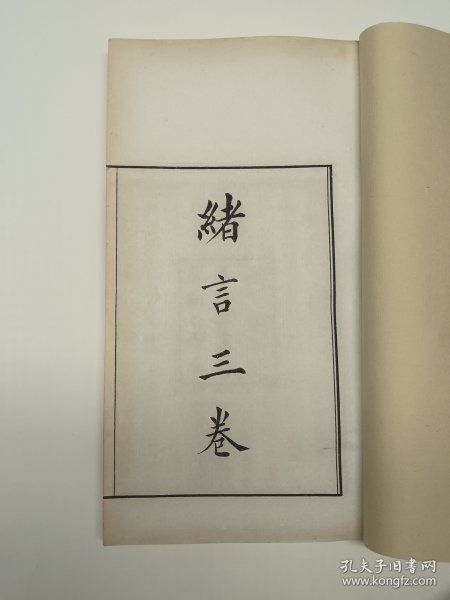 緒言三卷
孔夫子旧书网
www.kongfz.com